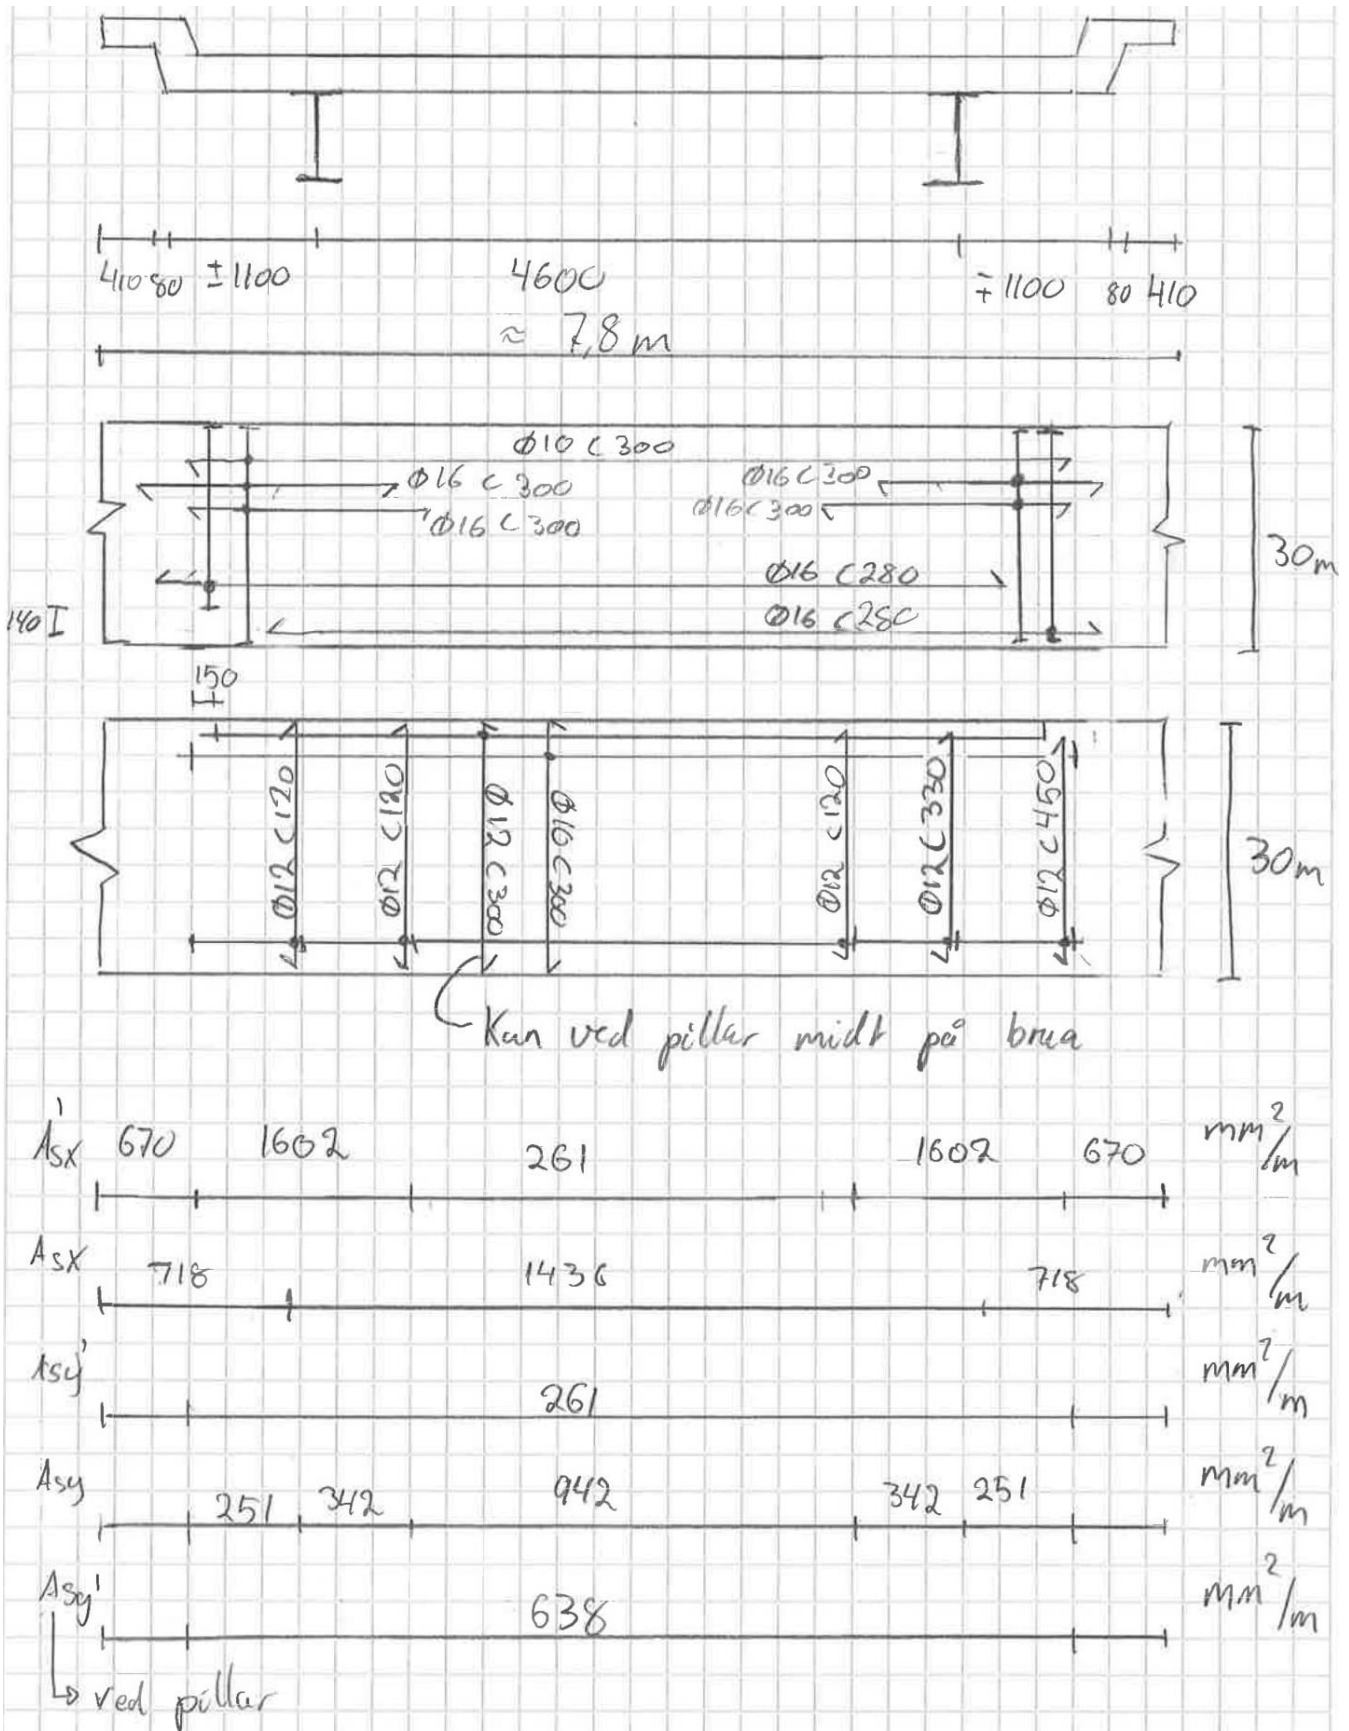 410 80 ±1100 4600 ∓1100 80 410
≈ 7,8 m
Ø10 C 300
Ø16 C 300 Ø16 C 300
Ø16 C 300 Ø16 C 300
30m
Ø16 C 280
140 Ø16 C 280
150
Ø12 C 120 Ø12 C 120 Ø12 C 300 Ø10 C 300 Ø12 C 120 Ø12 C 330 Ø12 C 450
30m
Kun ved pillar midt på brua
Asx' 670 1602 261 1602 670 mm²/m
Asx 718 1436 718 mm²/m
Asy' 261 mm²/m
Asy 251 342 942 342 251 mm²/m
Asy' 638 mm²/m
↳ ved pillar